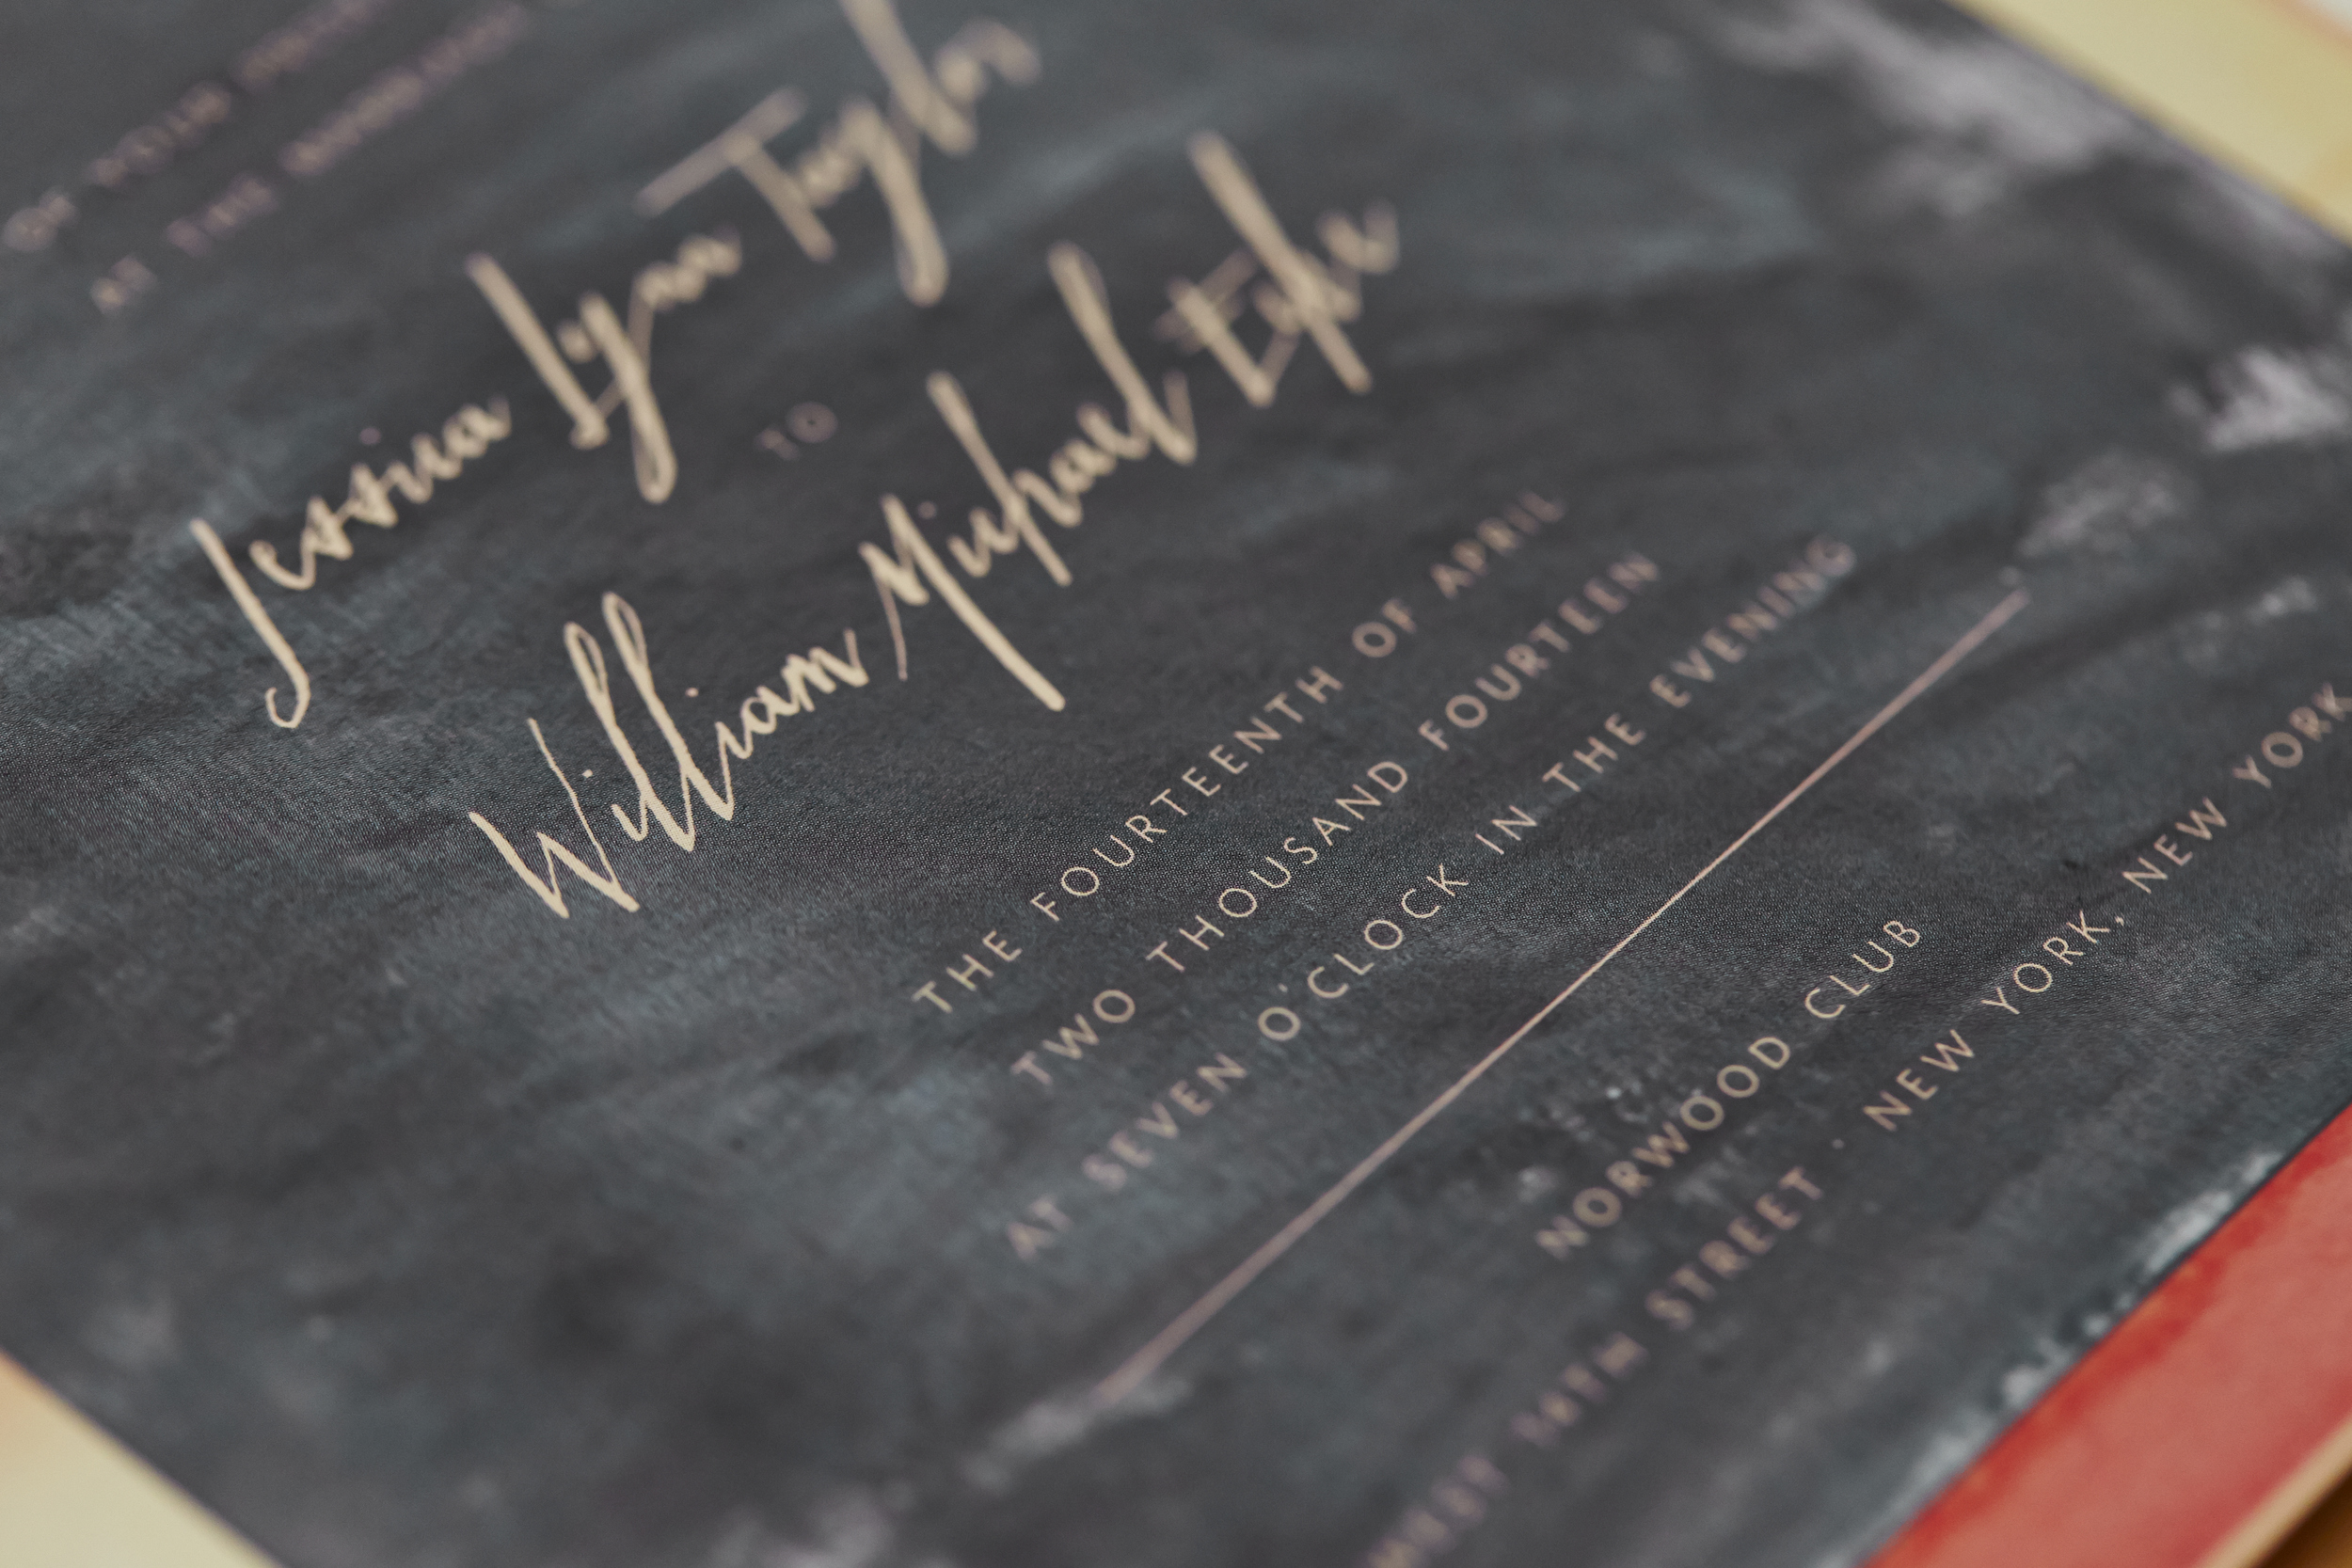 OF YOUR
AT THE MARRIAGE OF
Jessica Lynn Taylor
TO
William Michael Eyle
THE FOURTEENTH OF APRIL
TWO THOUSAND FOURTEEN
AT SEVEN O'CLOCK IN THE EVENING
NORWOOD CLUB
WEST 14TH STREET · NEW YORK, NEW YORK